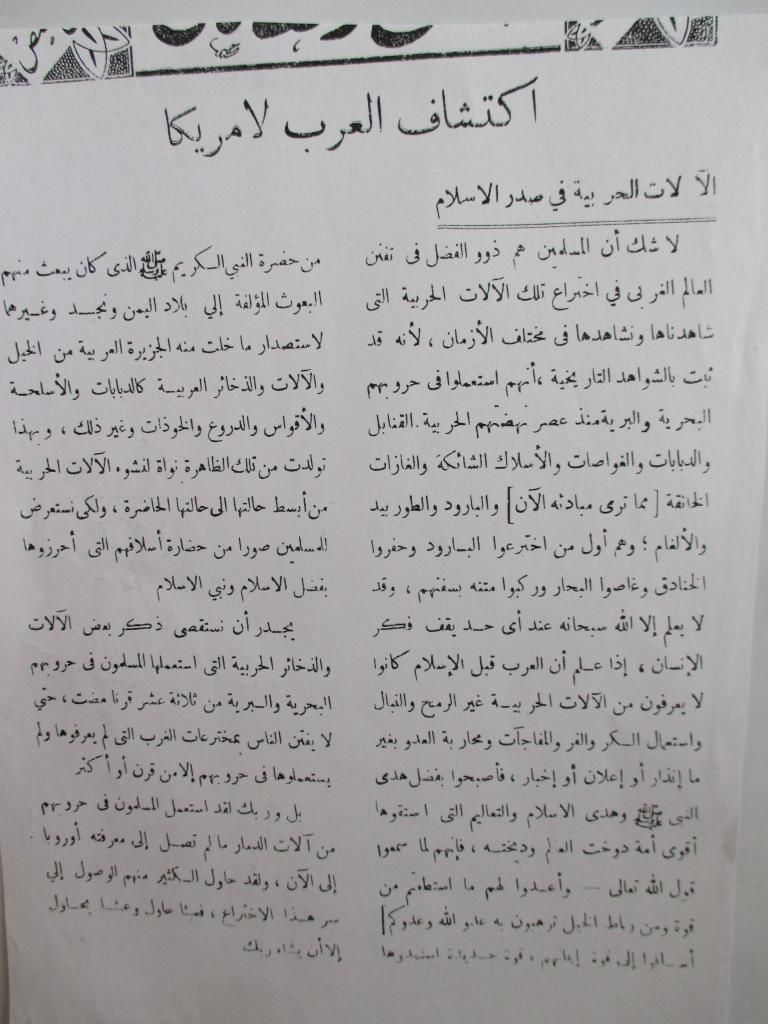 اكتشاف العرب لامريكا
الآلات الحربية في صدر الاسلام
لا شك أن المسلمين هم ذوو الفضل فى تفنن
العالم الغربى في اختراع تلك الآلات الحربية التى
شاهدناها ونشاهدها فى مختلف الأزمان ، لأنه قد
ثبت بالشواهد التاريخية ،أنهم استعملوا فى حروبهم
البحرية والبرية منذ عصر نهضتهم الحربية .القنابل
والدبابات والغواصات والأسلاك الشائكة والغازات
الخانقة [ مما ترى مبادئه الآن] والبارود والطوربيد
والألغام ؛ وهم أول من اخترعوا البارود وحفروا
الخنادق وغاصوا البحار وركبوا متنه بسفنهم ، وقد
لا يعلم إلا الله سبحانه عند أى حد يقف فكر
الإنسان ، إذا علم أن العرب قبل الإسلام كانوا
لا يعرفون من الآلات الحربية غير الرمح والنبال
واستعمال الكر والفر والمفاجآت ومحاربة العدو بغير
ما إنذار أو إعلان أو إخبار ، فأصبحوا بفضل هدى
النبى ﷺ وهدى الاسلام والتعاليم التى استقوها
أقوى أمة دوخت العالم ودبخته ، فإنهم لما سمعوا
قول الله تعالى — وأعدوا لهم ما استطعتم من
قوة ومن رباط الخيل ترهبون به عدو الله وعدوكم]
إلى قوة إيمانهم ، قوة جديدة استمدوها
من حضرة النبي الكريم ﷺ الذى كان يبعث منهم
البعوث المؤلفة إلي بلاد اليمن ونجد وغيرهما
لاستصدار ما خلت منه الجزيرة العربية من الخيل
والآلات والذخائر العربية كالدبابات والأسلحة
والأقواس والدروع والخوذات وغير ذلك ، وبهذا
تولدت من تلك الظاهرة نواة لنشوء الآلات الحربية
من أبسط حالتها الى حالتها الحاضرة ، ولكى نستعرض
للمسلمين صورا من حضارة أسلافهم التى أحرزوها
بفضل الاسلام ونبي الاسلام
يجدر أن نستقصى ذكر بعض الآلات
والذخائر الحربية التى استعملها المسلمون فى حروبهم
البحرية والبرية من ثلاثة عشر قرنا مضت ، حتي
لا يفتن الناس بمخترعات الغرب التى لم يعرفوها ولم
يستعملوها فى حروبهم إلا من قرن أو أكثر
بل وربك لقد استعمل المسلمون فى حروبهم
من آلات الدمار ما لم تصل إلى معرفته أوروبا
إلى الآن ، ولقد حاول الكثير منهم الوصول إلي
سر هذا الاختراع ، فعبثا حاول وعبثا يحاول
إلا أن يشاء ربك